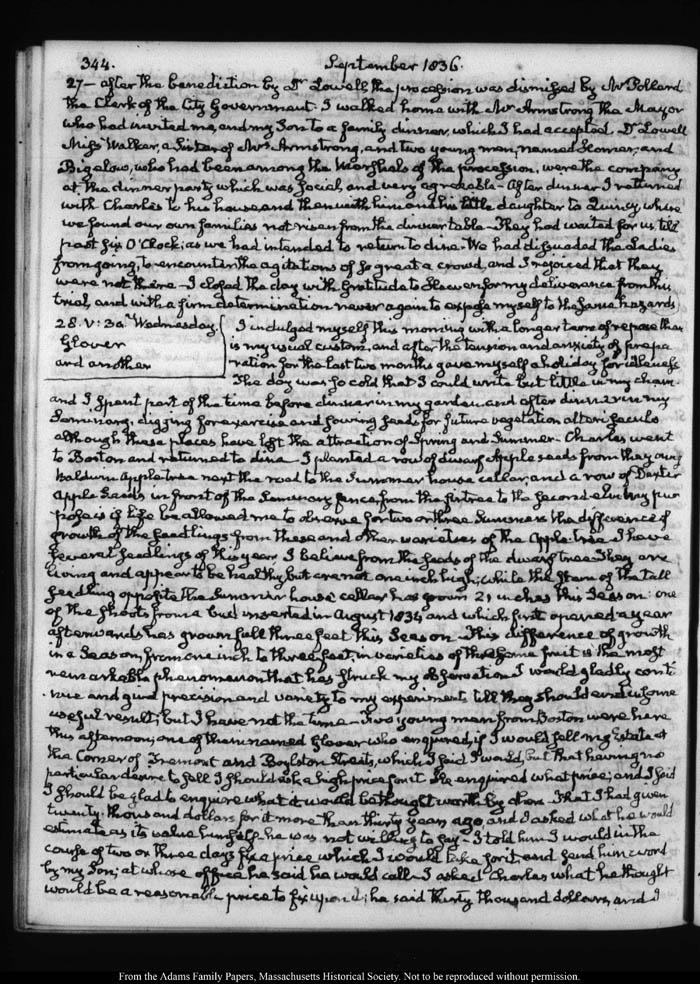 344. September 1836.
27 — after the benediction by Dr Lowell the procession was dismissed by Mr Pollard
the Clerk of the City Government. I walked home with Mr Armstrong the Mayor
who had invited me, and my Son to a family dinner, which I had accepted. Dr Lowell
Miss Walker, a Sister of Mrs Armstrong, and two young men, named Homer, and
Bigelow, who had been among the Marshals of the procession, were the company
at the dinner party which was social and very agreeable — After dinner I returned
with Charles to his house and then with him and his little daughter to Quincy, where
we found our own families not risen from the dinner table — They had waited for us, till
past six O'Clock; as we had intended to return to dine. We had dissuaded the Ladies
from going, to encounter the agitations of so great a crowd, and I rejoiced that they
were not there — I closed the day with Gratitude to Heaven for my deliverance from this
trial, and with a firm determination never again to expose myself to the same hazards
28. V: 30. Wednesday. I indulged myself this morning with a longer term of repose than
Glover is my usual custom, and after the tension and anxiety of prepa
and another ration for the last two months gave myself a holiday for idleness
The day was so cold that I could write but little in my cham
and I spent part of the time before dinner in my garden and after dinner in my
Seminary, digging for exercise and sowing seeds for future vegetation alteri seculo
although these places have lost the attraction of Spring and Summer — Charles went
to Boston and returned to dine — I planted a row of dwarf Apple seeds from the young
Baldwin Apple tree next the road to the Summer house cellar, and a row of Dexter
Apple Seeds in front of the Seminary fence from the firtree to the second elm my pur
pose is if life be allowed me to observe for two or three Summers the difference of
growth of the seedlings from these and other varieties of the Apple-tree. I have
several seedlings of this year I believe from the seeds of the dwarf tree. They are
living and appear to be healthy but are not one inch high; while the Stem of the tall
seedling opposite the Summer house cellar has grown 21 inches this Season: one
of the shoots from a bud inserted in August 1834 and which first opened a year
afterwards has grown full three feet this Season — This difference of growth
in a Season, from one inch to three feet, in varieties of the same fruit is the most
remarkable phenomenon that has struck my observation I would gladly conti
nue and give precision and variety to my experiments till they should end in some
useful result; but I have not the time — Two young men from Boston were here
this afternoon; one of them named Glover who enquired, if I would sell my Estate at
the Corner of Tremont and Boylston Streets, which I said I would, but that having no
particular desire to sell I should ask a high price for it. He enquired what price; and I said
I should be glad to enquire what it would be thought worth by others. That I had given
twenty thousand dollars for it more than thirty years ago and I asked what he would
estimate as its value himself he was not willing to say — I told him I would in the
course of two or three days fix a price which I would take for it, and send him word
by my Son; at whose office he said he would call — I asked Charles what he thought
would be a reasonable price to fix upon it; he said thirty thousand dollars, and I
From the Adams Family Papers, Massachusetts Historical Society. Not to be reproduced without permission.